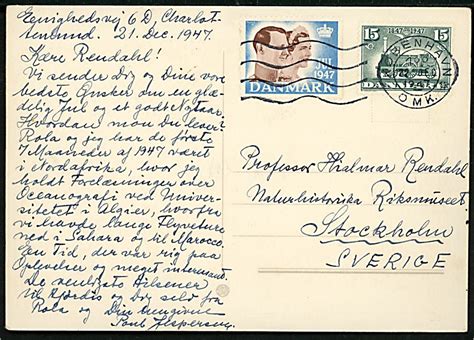 Enighedsvej 6 D, Charlot-
tenlund. 21. Dec. 1947.
Kære Rendahl!
Vi sender Dig og Dine vore
bedste Ønsker om en glæ-
delig Jul og et godt Nytaar.
Hvordan mon Du lever?
Rola og jeg har de første
7 Maaneder af 1947 været
i Nordafrika, hvor jeg
holdt Forelæsninger over
Oceanografi ved Univer-
sitetet i Algier, hvorfra
vi havde lange Flyveture
ned i Sahara og til Marocco.
En Tid, der var rig paa
Oplevelser og meget interessant.
De venligste Hilsener
til Hjørdis og Dig selv fra
Rola og Din hengivne
Poul Jespersen.
JUL
1947
DANMARK
15 1847-1947 15
KØBENHAVN
OMK.
Professor Hialmar Rendahl
Naturhistoriska Riksmuseet
Stockholm
SVERIGE